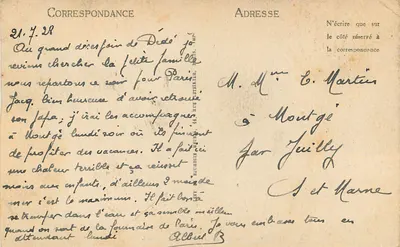 CORRESPONDANCE
21.7.28
Au grand désespoir de Dédé je
reviens chercher la petite famille
nous repartons ce soir pour Paris
Jacq. bien heureux d'avoir retrouvé
son papa; j'irai les accompagner
à Montgé lundi soir où ils finiront
de profiter des vacances. Il a fait ici
une chaleur terrible et ça réussit
moins aux enfants, d'ailleurs 2 mois de
mer c'est le maximum. Il fait bon
se tremper dans l'eau et ça semble meilleur
quand on sort de la fournaise de Paris. Je vous embrasse tous en
attendant lundi
Albert
ADRESSE
N'écrire que sur
le côté réservé à
la correspondance
M. Mme C. Martin
à Montgé
par Juilly
S et Marne